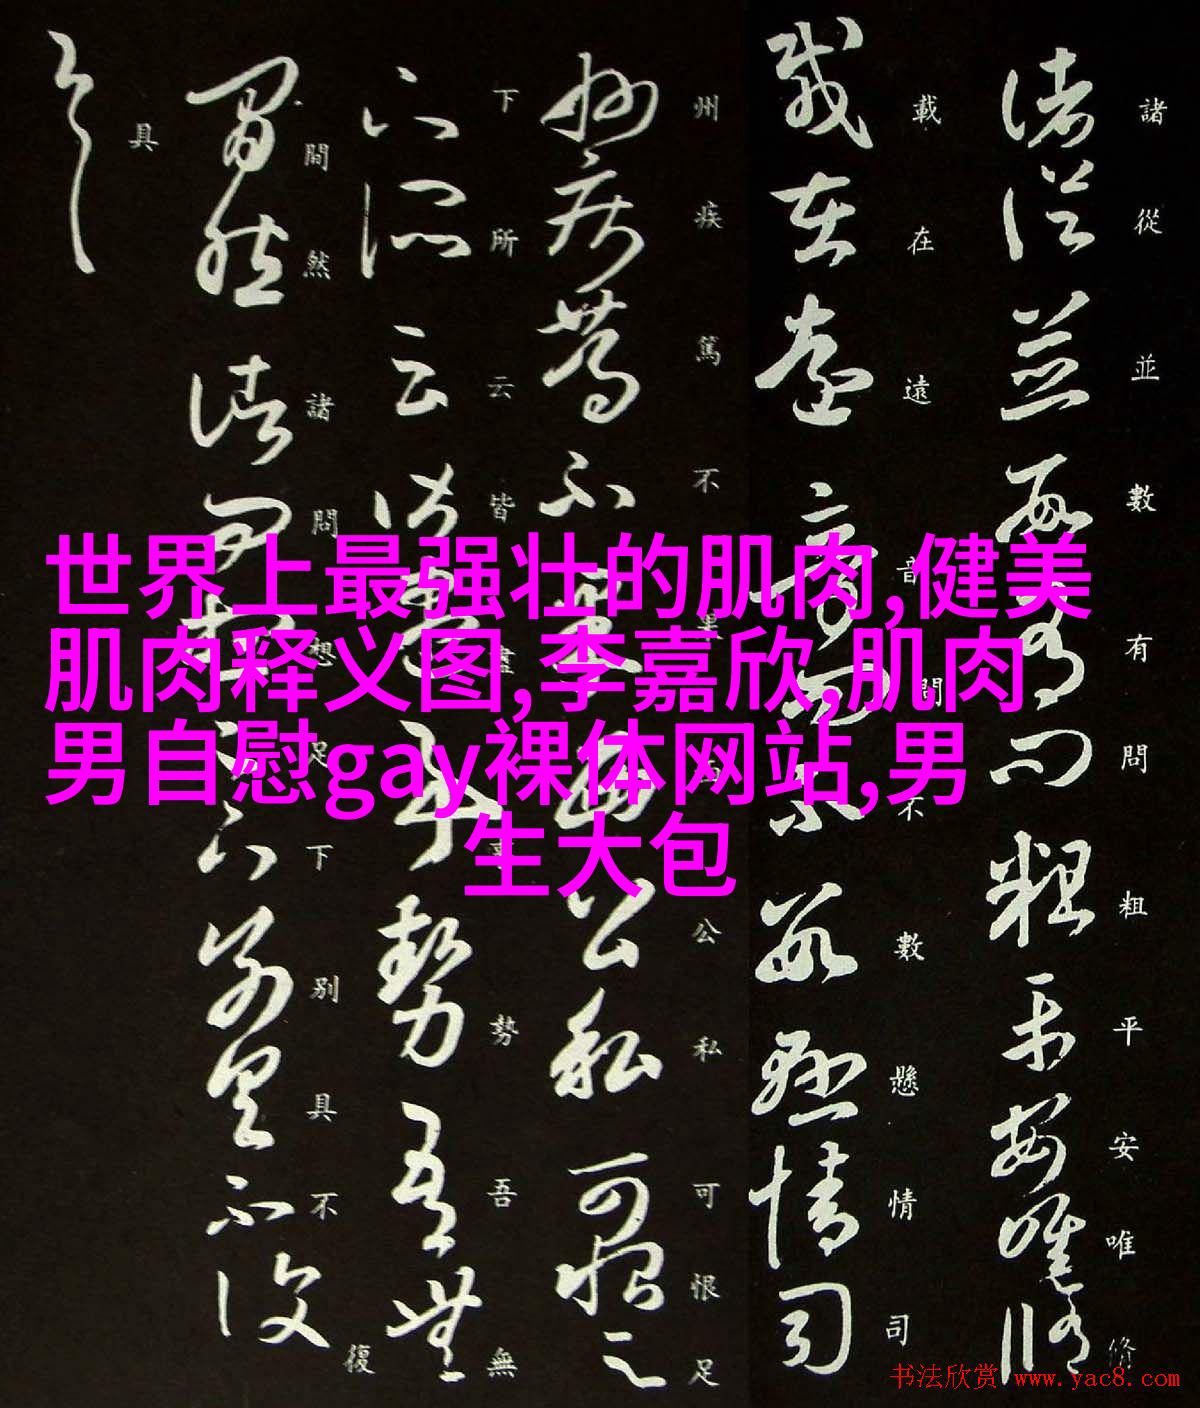 諸從並數有問粗平安唯修
載在遠音問不數懸情司
州疾篤不果西公私可恨足
下所云皆盡事勢吾無
間然諸問想足下別具不復
具
世界上最强壮的肌肉,健美
肌肉释义图,李嘉欣,肌肉
男自慰gay裸体网站,男
生大包
书法欣赏 www.yac8.com